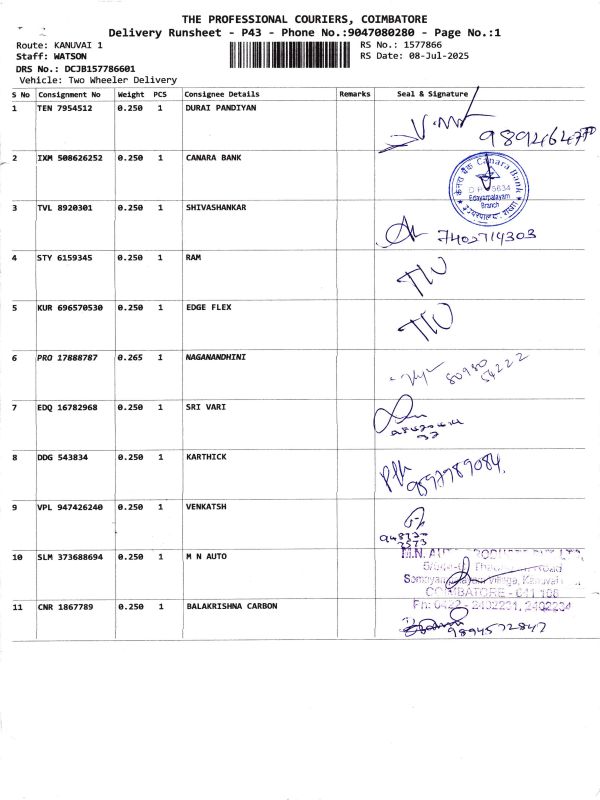 THE PROFESSIONAL COURIERS, COIMBATORE
Delivery Runsheet - P43 - Phone No.:9047080280 - Page No.:1
Route: KANUVAI 1
Staff: WATSON
DRS No.: DCJB157786601
Vehicle: Two Wheeler Delivery
RS No.: 1577866
RS Date: 08-Jul-2025
S No Consignment No Weight PCS Consignee Details Remarks Seal & Signature
1 TEN 7954512 0.250 1 DURAI PANDIYAN
2 IXM 508626252 0.250 1 CANARA BANK
Canara Bank
Edayarpalayam
Branch
3 TVL 8920301 0.250 1 SHIVASHANKAR
7402714303
4 STY 6159345 0.250 1 RAM
5 KUR 696570530 0.250 1 EDGE FLEX
6 PRO 17888787 0.265 1 NAGANANDHINI
80980
54222
7 EDQ 16782968 0.250 1 SRI VARI
8 DDG 543834 0.250 1 KARTHICK
9 VPL 947426240 0.250 1 VENKATSH
10 SLM 373688694 0.250 1 M N AUTO
COIMBATORE - 641 108
Ph: 0422 - 2402231, 2402234
11 CNR 1867789 0.250 1 BALAKRISHNA CARBON
9894572847